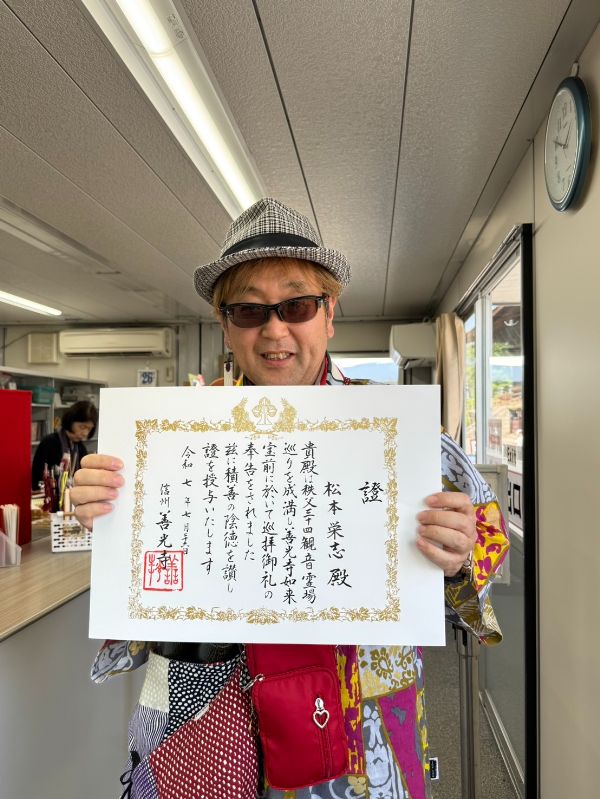 證
松本栄志殿
貴殿は秩父三十四観音霊場
巡りを成満し善光寺如来
宝前に於いて巡拝御礼の
奉告をされました
茲に積善の陰徳を讃し
證を授与いたします
令和七年七月二十六日
信州善光寺
26